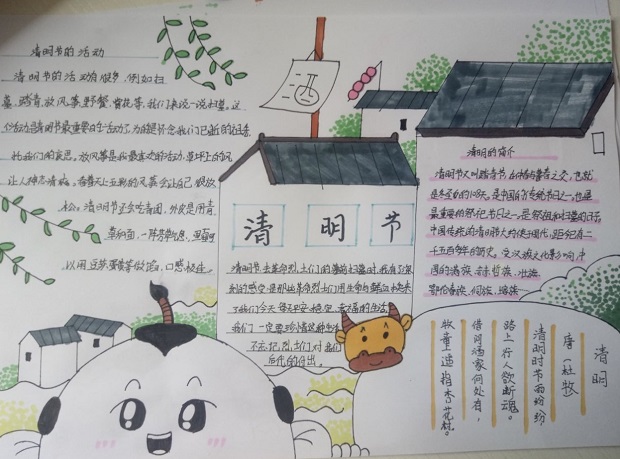 清明节的活动
清明节的活动有很多,例如扫
墓、踏青、放风筝、野餐、赏花等,我们来说一说扫墓,这
个活动是清明节最重要的
我们的哀思。放风筝是我最喜欢的活动,草坪上的风
让人神志清爽。看着天上五彩的风筝会让自己
清明节还会吃青团,外皮是用青
草和面,一阵芳草气息,里面可
以用豆莎、蛋黄等做馅,口感极佳。
清 明 节
清明节,去革命烈士们的墓前扫墓时,我有了深
刻的感受,是那些革命烈士们用生命与鲜血
了我们今天
我们一定要珍惜这种生活
不忘记烈士们对我们
后代的付出。
清明的简介
清明节又叫踏青节,在仲春与暮春之交,也就
是冬至后的108天,是中国的传统节日之一,也是
最重要的祭祀节日之一,是祭祖和扫墓的日子。
中国传统的清明节大约始于周代,距今已有二
千五百多年的历史。受汉族文化影响,中
国的满族、赫哲族、壮族、
鄂伦春族、侗族、
清明
唐(杜牧)
清明时节雨纷纷
路上行人欲断魂。
借问酒家何处有,
牧童遥指杏花村。